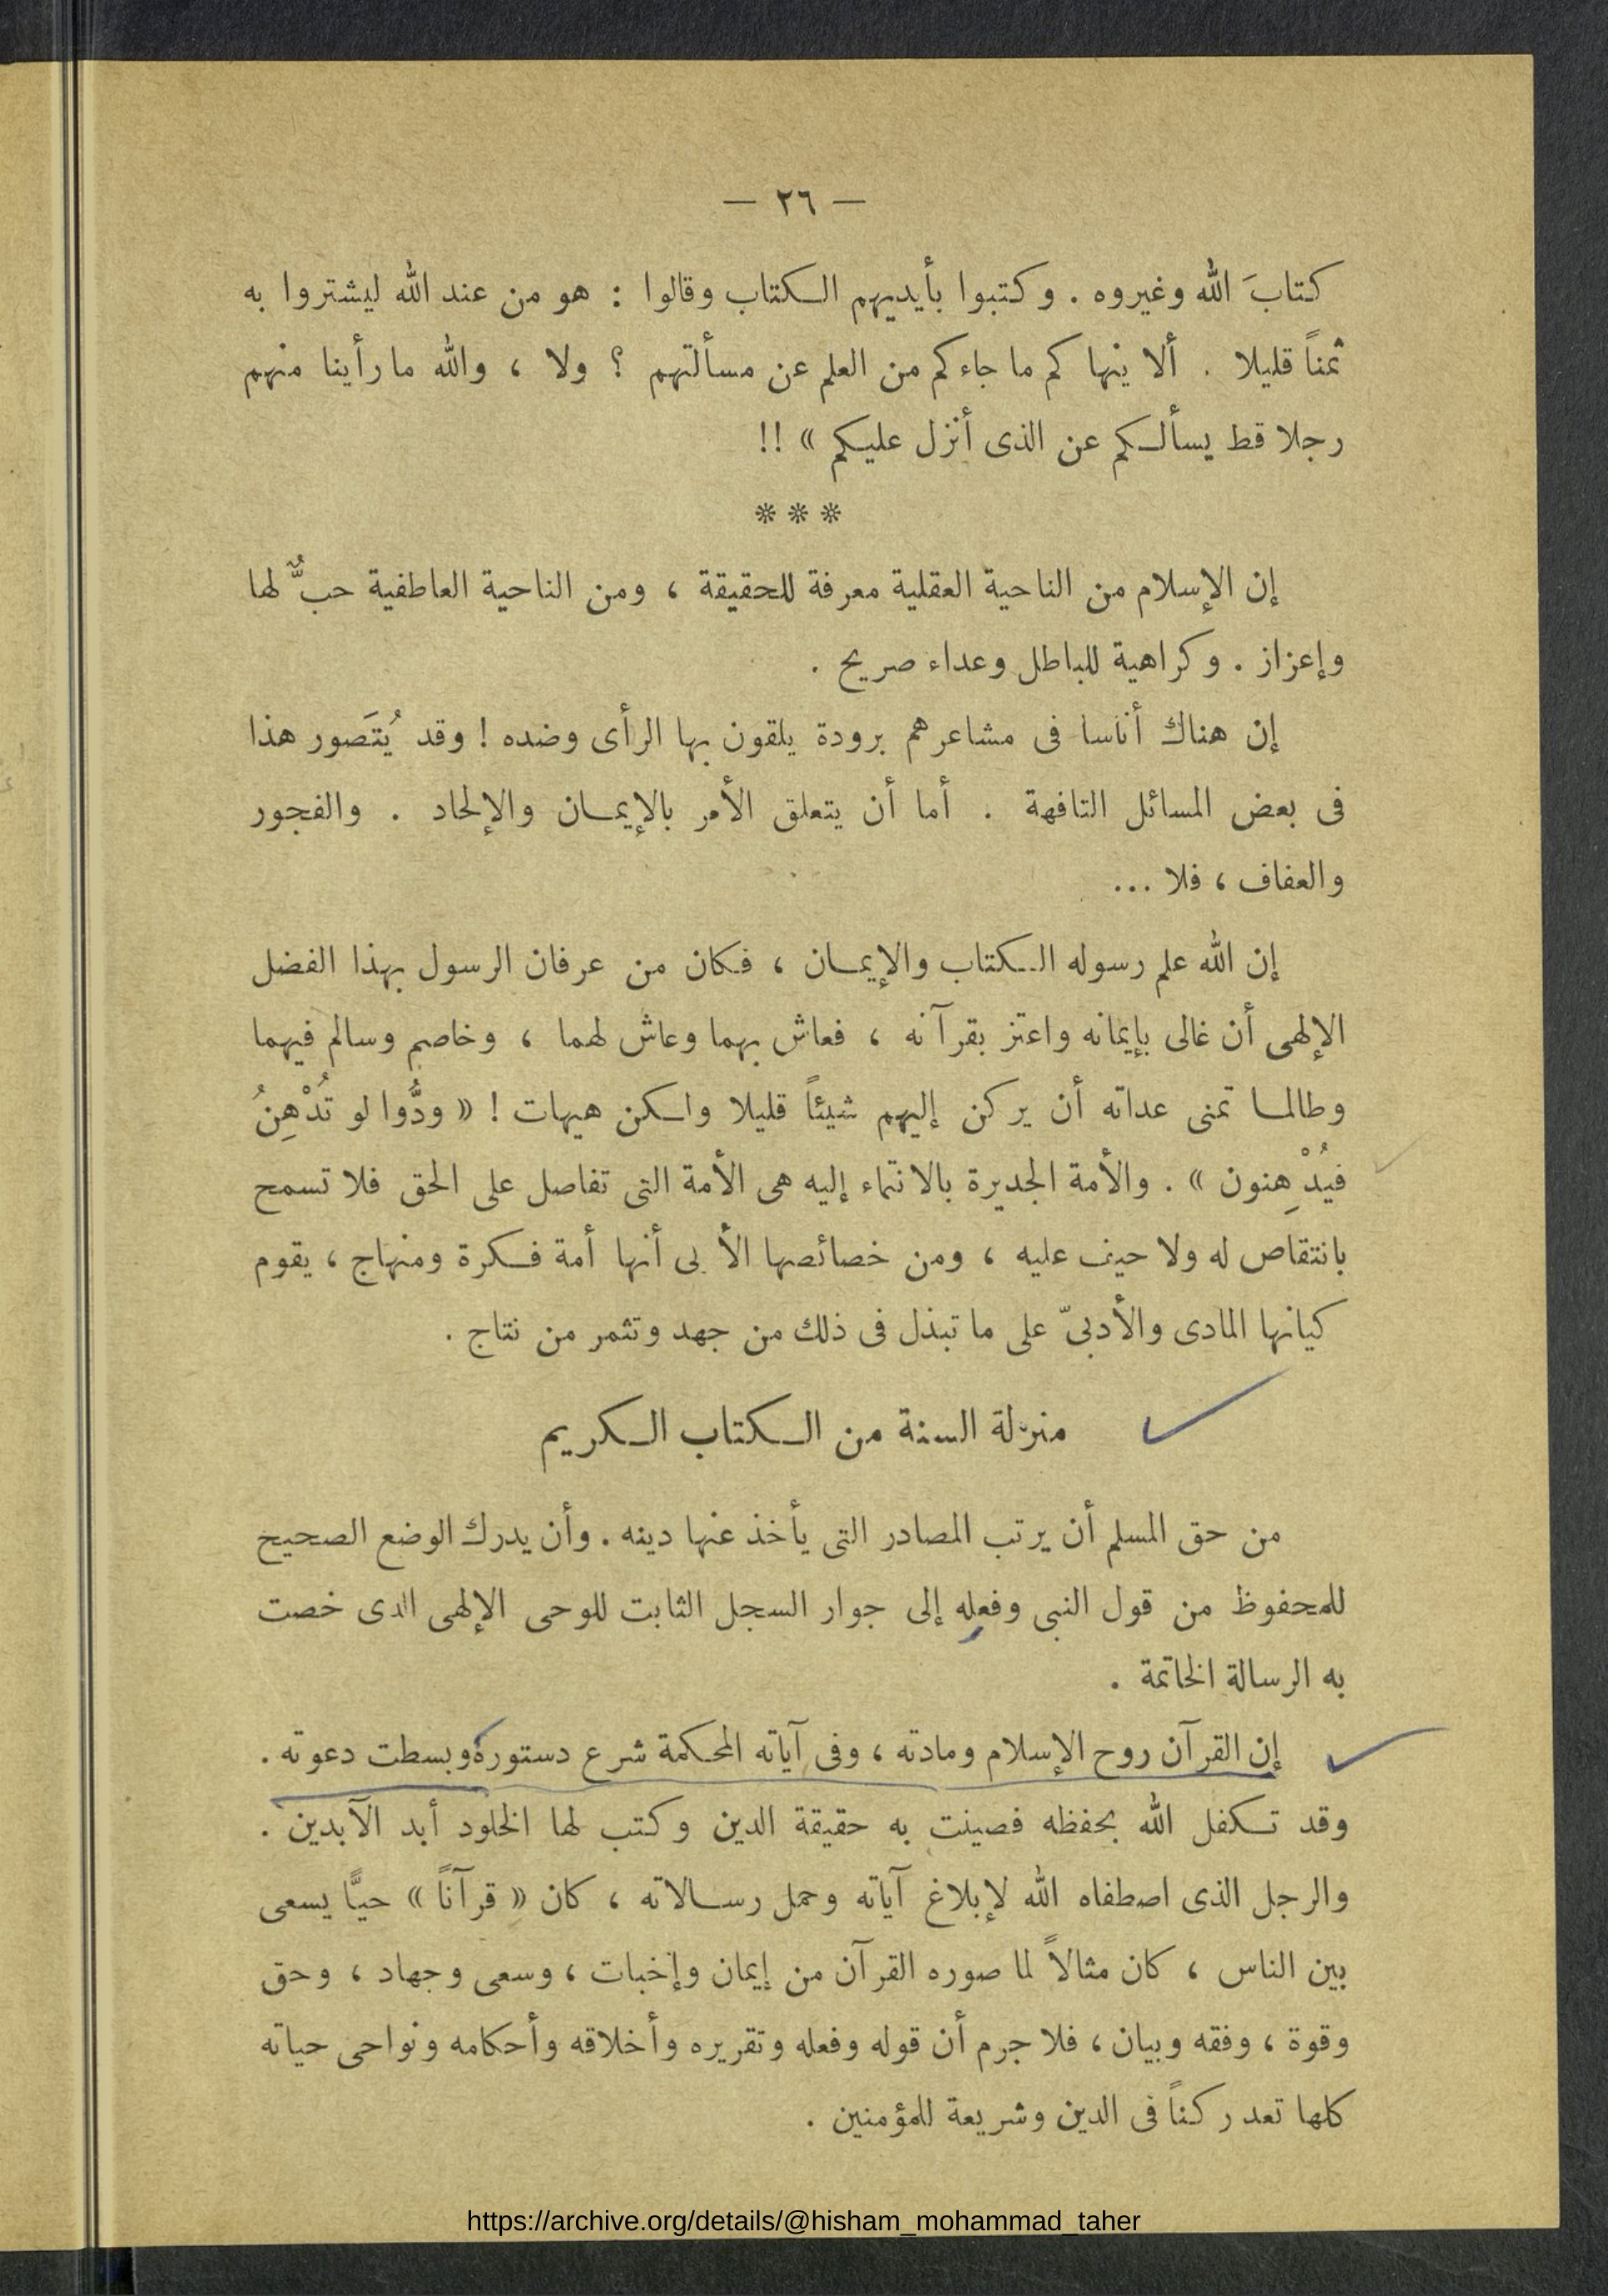 — ٢٦ —
كتابَ الله وغيروه . وكتبوا بأيديهم الكتاب وقالوا : هو من عند الله ليشتروا به
ثمناً قليلا . ألا ينهاكم ما جاءكم من العلم عن مسألتهم ؟ ولا ، والله ما رأينا منهم
رجلا قط يسألكم عن الذى أنزل عليكم » !!
* * *
إن الإسلام من الناحية العقلية معرفة للحقيقة ، ومن الناحية العاطفية حبٌّ لها
وإعزاز . وكراهية للباطل وعداء صريح .
إن هناك أناسا فى مشاعرهم برودة يلقون بها الرأى وضده ! وقد يُتَصور هذا
فى بعض المسائل التافهة . أما أن يتعلق الأمر بالإيمان والإلحاد . والفجور
والعفاف ، فلا ...
إن الله علم رسوله الكتاب والإيمان ، فكان من عرفان الرسول بهذا الفضل
الإلهى أن غالى بإيمانه واعتز بقرآنه ، فعاش بهما وعاش لهما ، وخاصم وسالم فيهما
وطالما تمنى عداته أن يركن إليهم شيئاً قليلا ولكن هيهات ! « ودُّوا لو تُدْهِنُ
فيُدْهِنون » . والأمة الجديرة بالانتماء إليه هى الأمة التى تفاصل على الحق فلا تسمح
بانتقاص له ولا حيف عليه ، ومن خصائصها أنها أمة فكرة ومنهاج ، يقوم
كيانها المادى والأدبىّ على ما تبذل فى ذلك من جهد وتثمر من نتاج .
منزلة السنة من الكتاب الكريم
من حق المسلم أن يرتب المصادر التى يأخذ عنها دينه . وأن يدرك الوضع الصحيح
للمحفوظ من قول النبى وفعله إلى جوار السجل الثابت للوحى الإلهى الذى خصت
به الرسالة الخاتمة .
إن القرآن روح الإسلام ومادته ، وفى آياته المحكمة شرع دستوره وبسطت دعوته .
وقد تكفل الله بحفظه فصينت به حقيقة الدين وكتب لها الخلود أبد الآبدين .
والرجل الذى اصطفاه الله لإبلاغ آياته وحمل رسالاته ، كان « قرآناً » حيًّا يسعى
بين الناس ، كان مثالاً لما صوره القرآن من إيمان وإخبات ، وسعى وجهاد ، وحق
وقوة ، وفقه وبيان ، فلا جرم أن قوله وفعله وتقريره وأخلاقه وأحكامه ونواحى حياته
كلها تعد ركناً فى الدين وشريعة للمؤمنين .
https://archive.org/details/@hisham_mohammad_taher